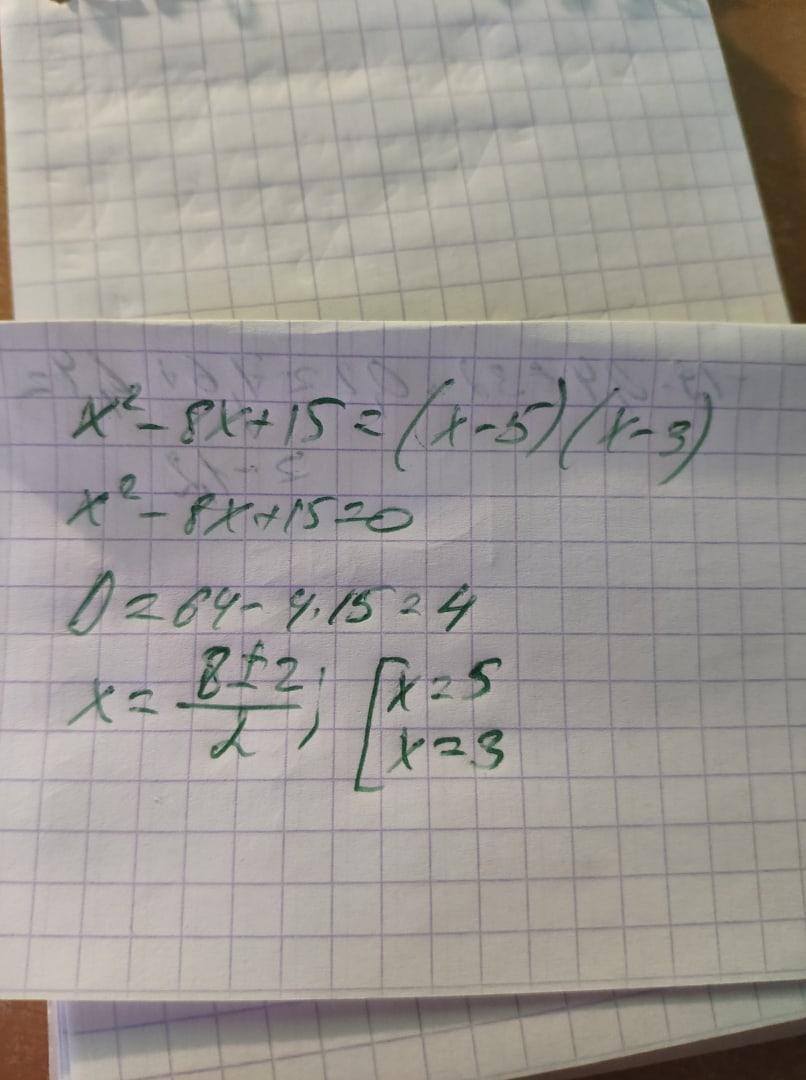 x² - 8x + 15 = (x - 5)(x - 3)
x² - 8x + 15 = 0
D = 64 - 4·15 = 4
x = (8 ± 2)/2; [x = 5
x = 3